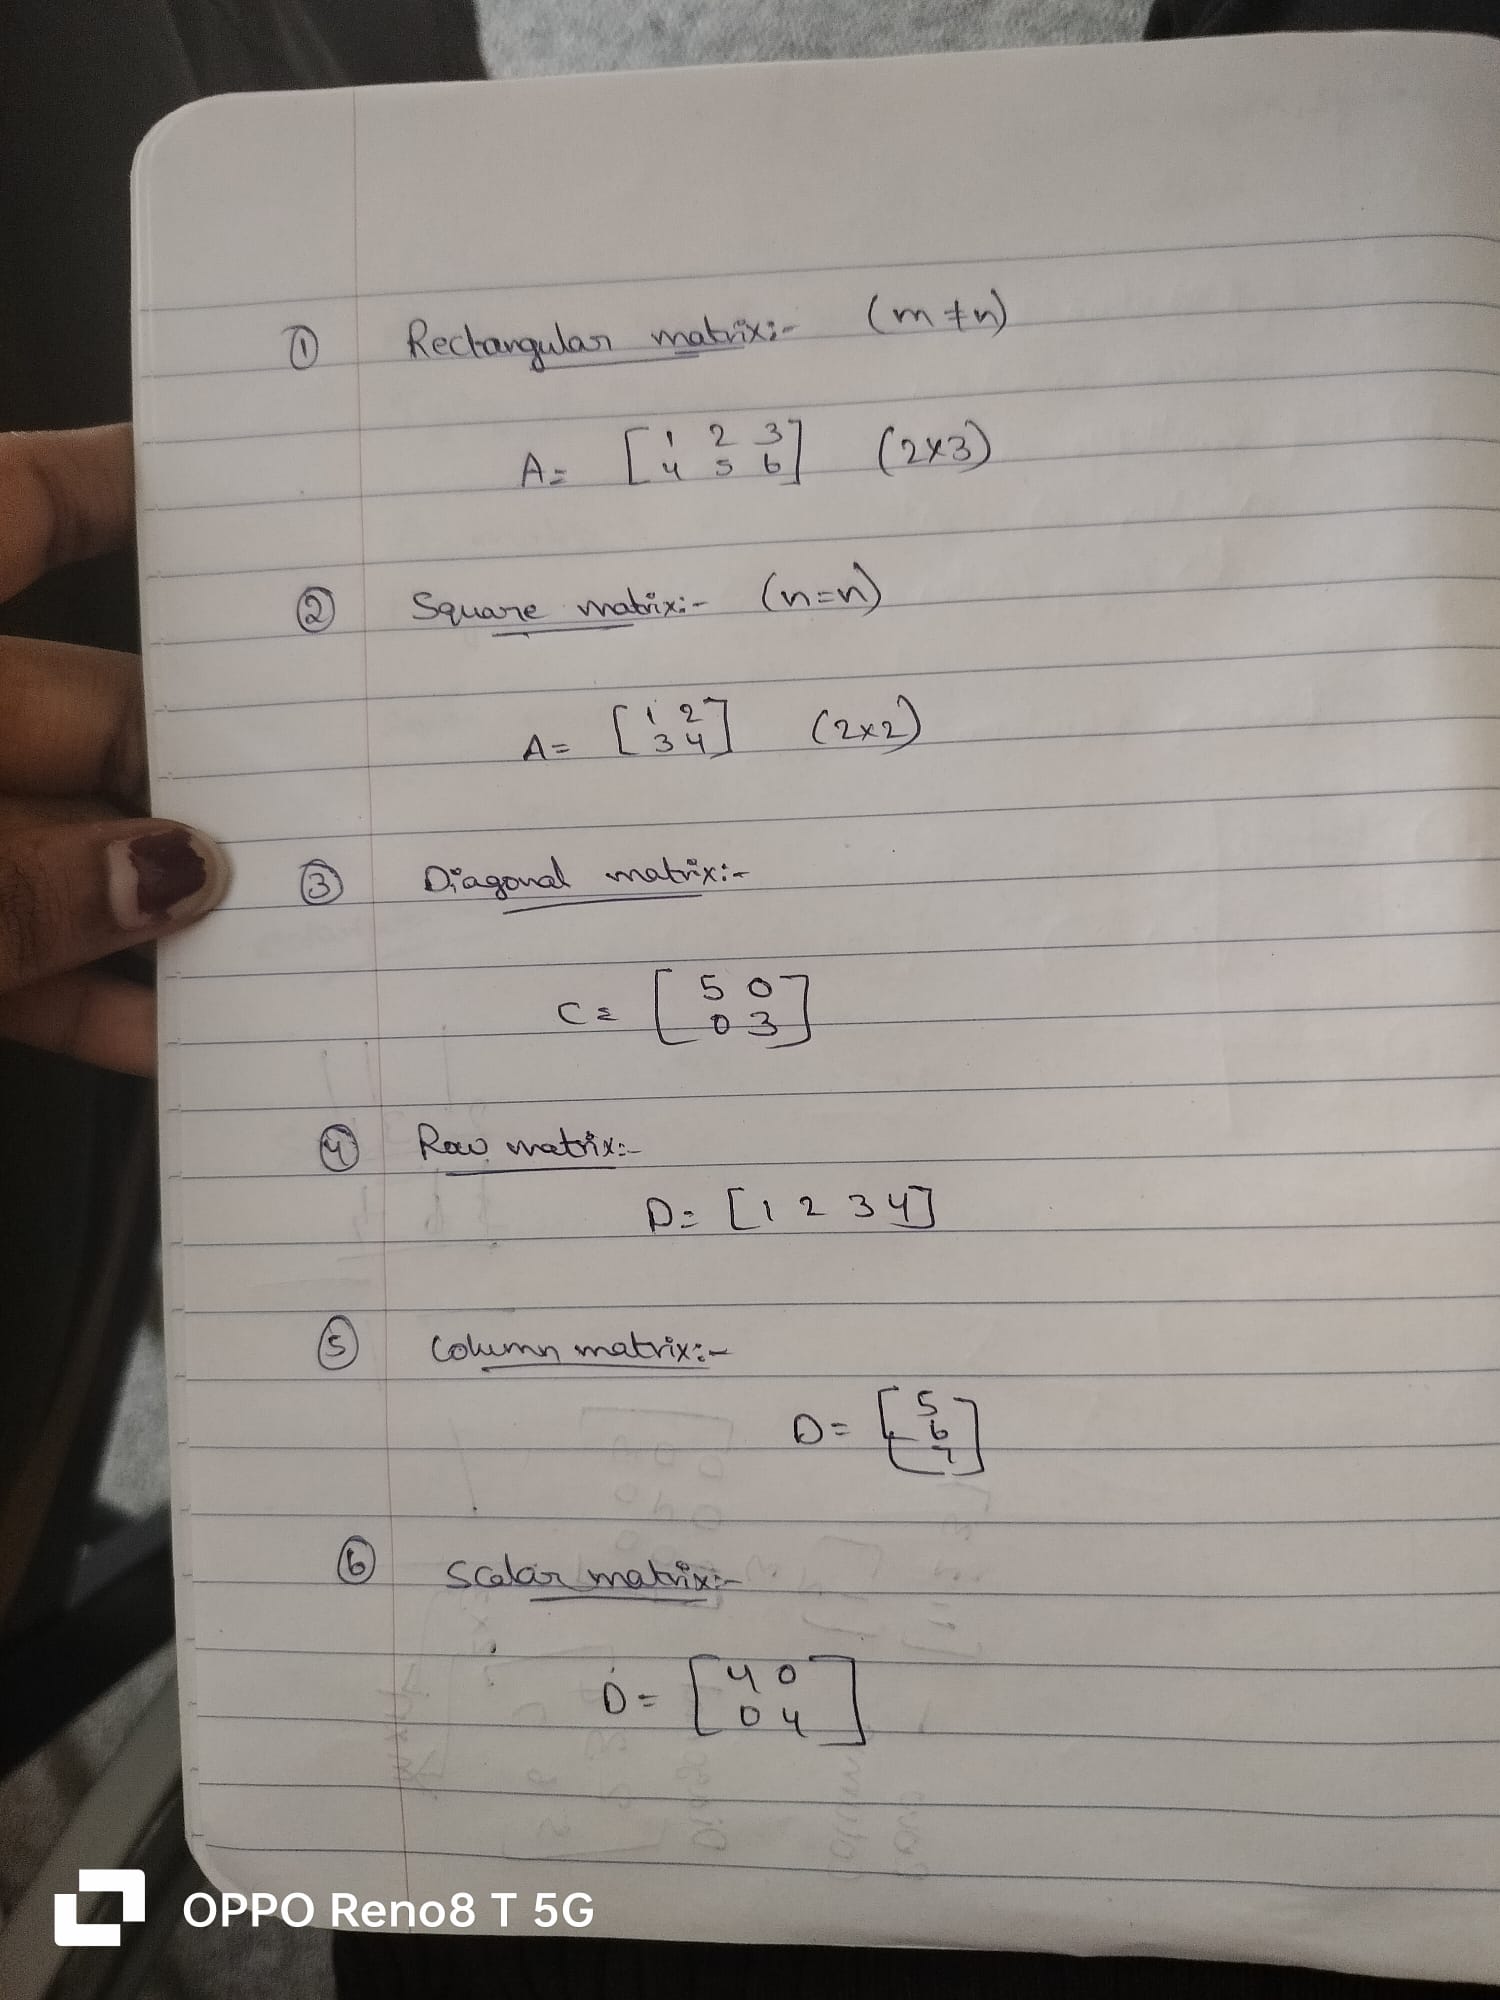 ① Rectangular matrix:- (m ≠ n)
A= [1 2 3
4 5 6] (2×3)
② Square matrix:- (n=n)
A= [1 2
3 4] (2×2)
③ Diagonal matrix:-
C= [5 0
0 3]
④ Row matrix:-
D= [1 2 3 4]
⑤ Column matrix:-
D= [5
6
7]
⑥ Scalar matrix:-
D= [4 0
0 4]
OPPO Reno8 T 5G